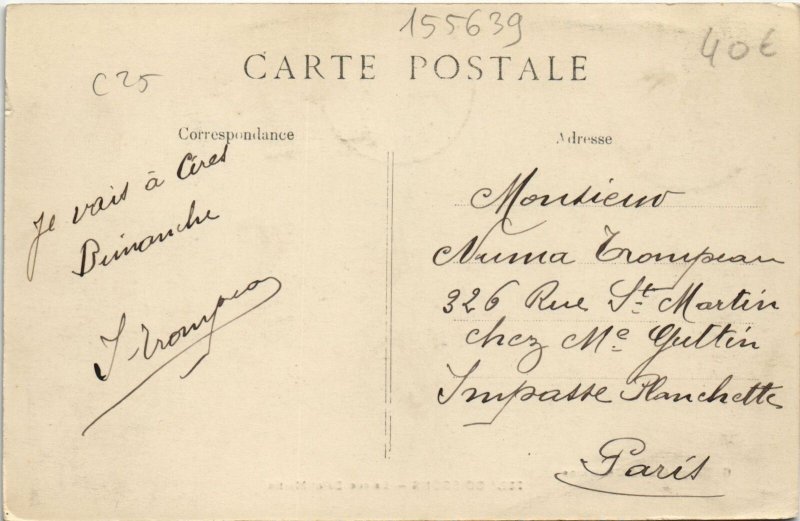 155639
40€
C25
CARTE POSTALE
Correspondance
Adresse
Je vais à Cérès
Dimanche
J. Trompeau
Monsieur
Numa Trompeau
326 Rue St Martin
chez Me Guttin
Impasse Planchette
Paris